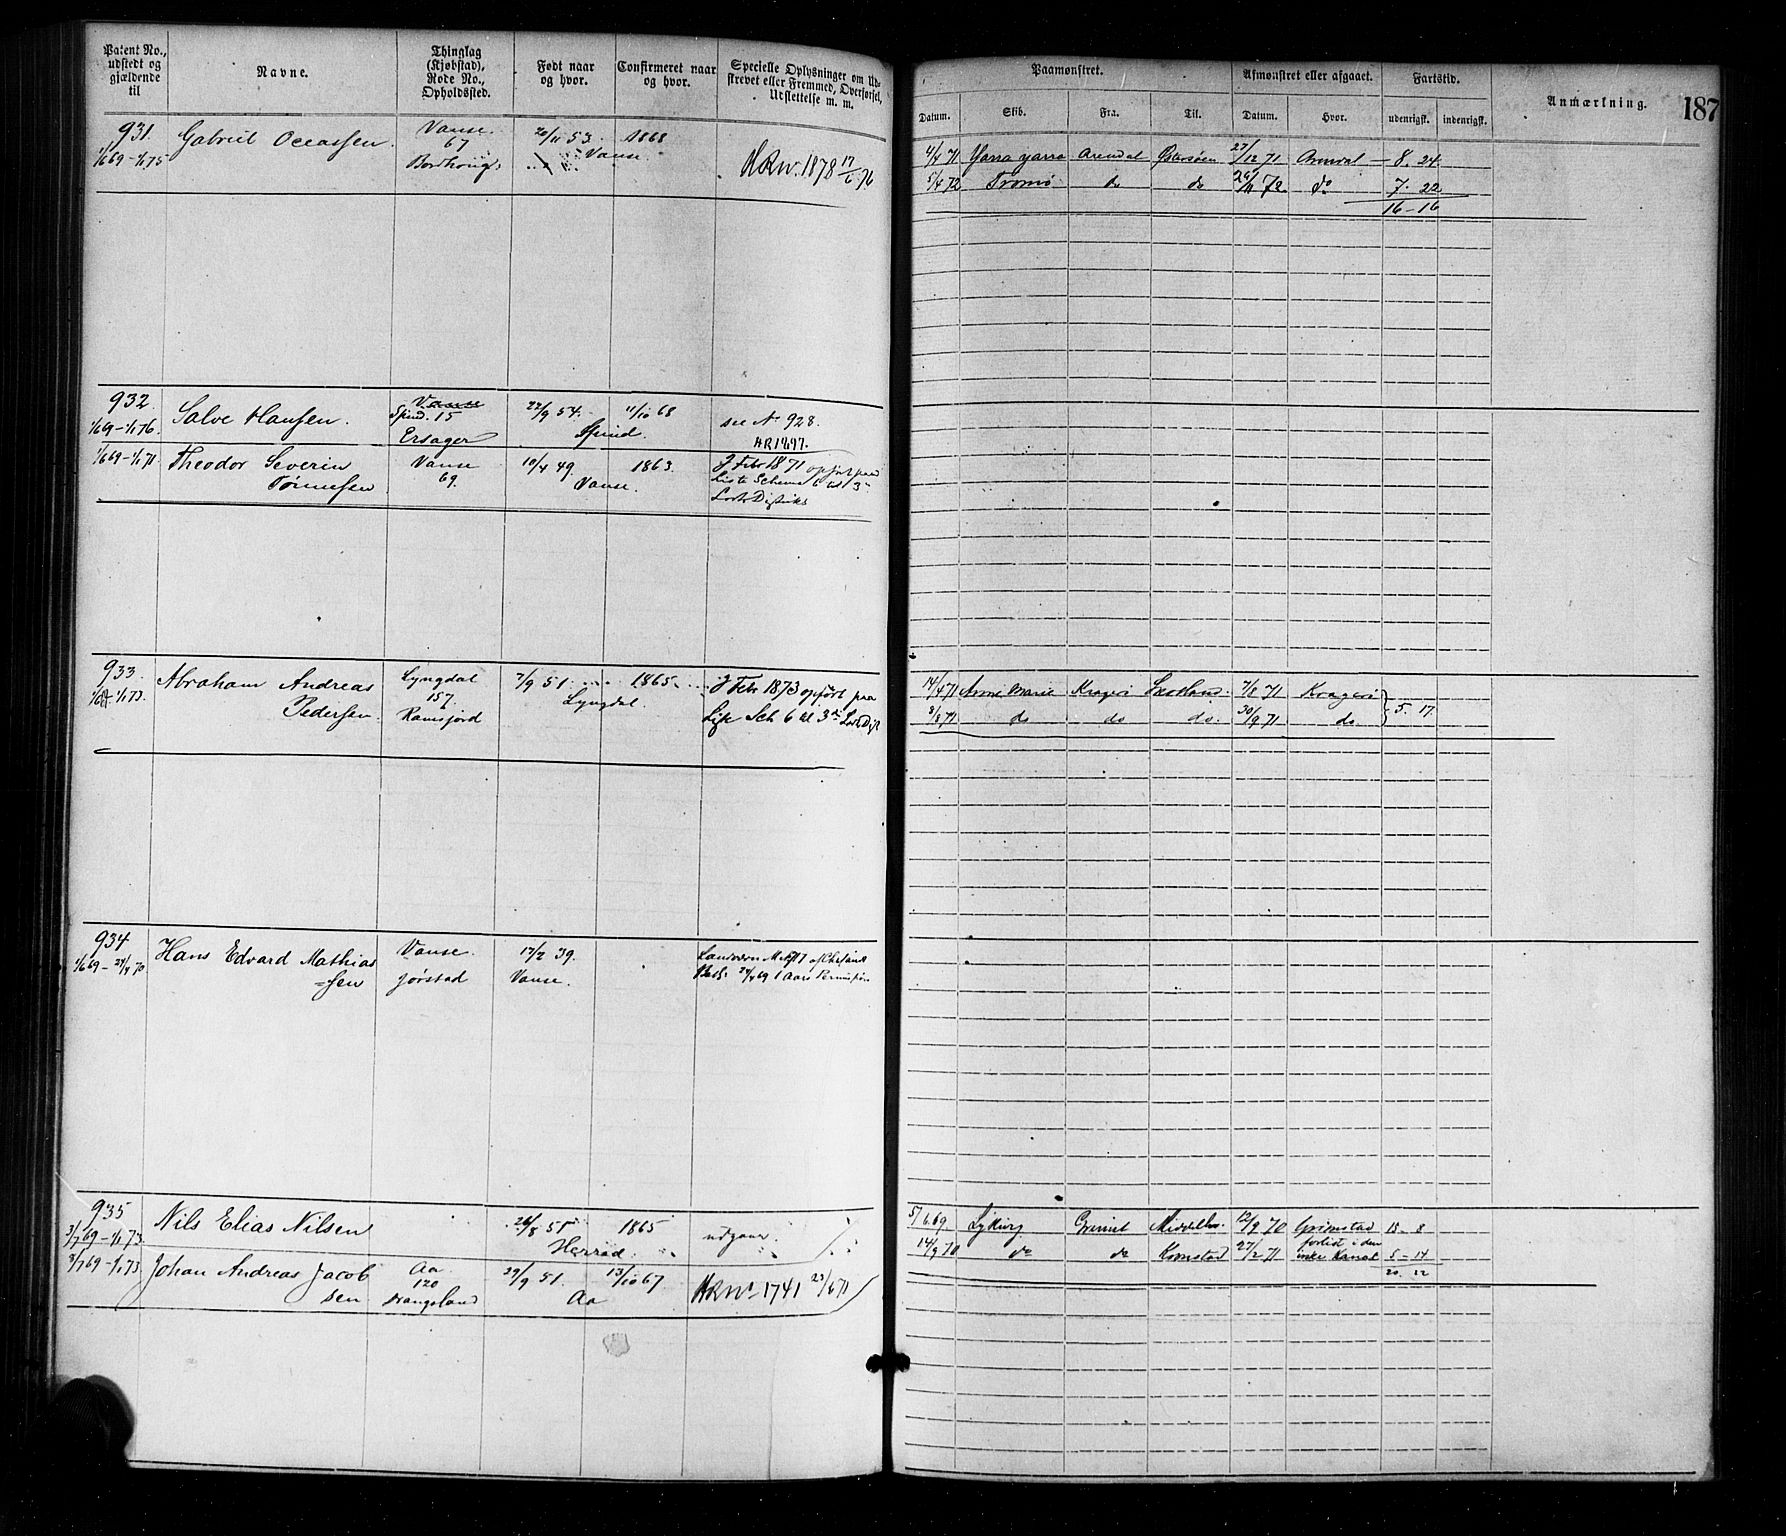 Patent No., udstedt og gjældende til
Navne.
Thinglag (Kjøbstad), Rode No., Opholdssted.
Født naar og hvor.
Confirmeret naar og hvor.
Specielle Oplysninger om Udskrevet eller Fremmed, Overførsel, Udslettelse m. m.
Paamønstret.
Afmønstret eller afgaaet.
Fartstid.
Anmærkning.
187
Datum.
Skib.
Fra.
Til.
Datum.
Hvor.
udenrigsk.
indenrigsk.
931.
1/6 69 - 1/1 75
Gabriel
Vanse.
67
26/11 53.
1868
Vanse
1878 17/6 76
4/4 71 Yarra yarra Arendal Østersøen 23/12 71 Arendal - 8. 24.
5/4 72 Tromø do do 29/11 72 do 7. 22
16 - 16
932.
1/6 69 - 1/1 76.
Salve Hansen.
Vanse
Spind. 15
Ersager
22/9 54.
11/10 68
Spind.
see No 928.
AR 1897.
1/6 69 - 1/1 71.
Theodor Severin
Tønnessen
Vanse
69.
10/4 49.
1863.
Vanse.
J Febr 1871 opført paa
Liste Schema 6 til 3
Distrikt
933.
1/6 69 - 1/1 73.
Abraham Andreas
Pedersen.
Lyngdal
157.
Ramsfjord
7/9 51.
1865.
Lyngdal.
J Febr 1873 opført paa
List Sch 6 til 3die
14/4 71 Anne Marie Kragerø 7/8 71 Kragerø
8/8 71 do do do. 30/9 71 do.
5. 17.
934
1/6 69 - 24/4 70
Hans Edvard Mathias
-sen
Vanse.
Jørstad
17/2 39.
Vanse.
24/4 69 1 Aars Permission
935
3/7 69 - 1/1 73.
Nils Elias Nilsen
26/8 51
1865
Herred
udgaar.
5/6 69 Grimst 12/9 70 Grimstad 15 - 8
14/9 70 do do 27/2 71 forlist i den
Kanal 5 - 14
20. 22
3/7 69 - 1/1 73
Johan Andreas Jacob
sen
Aa
120
29/9 51.
13/10 67
Aa
1741 23/6 71